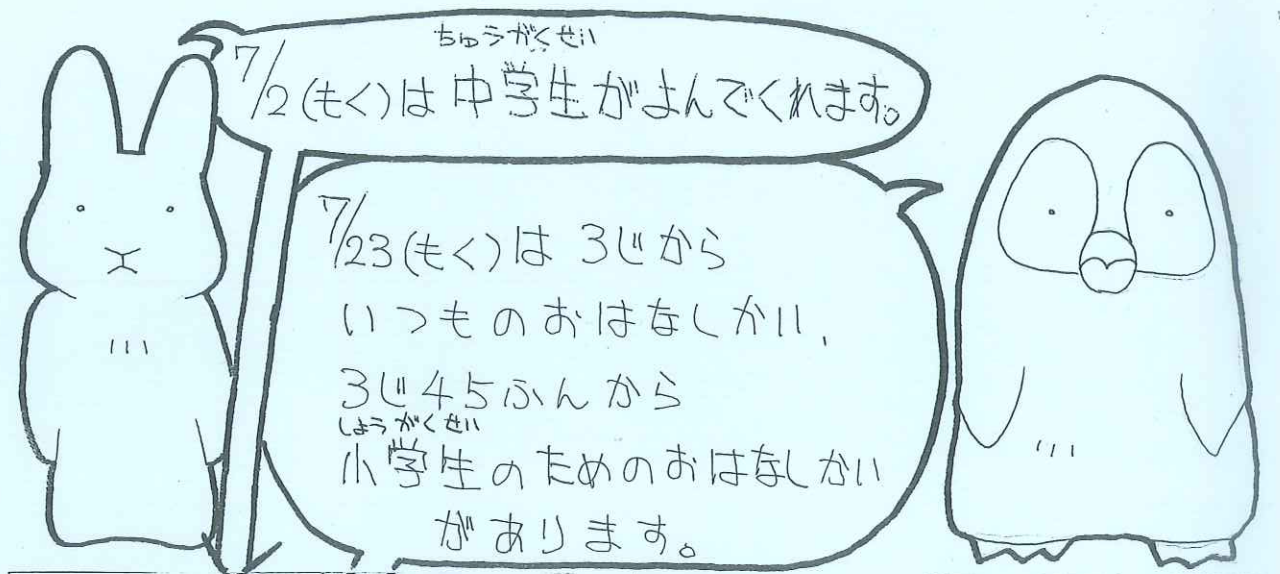 7/2(もく)は中学生がよんでくれます。
ちゅうがくせい
7/23(もく)は 3じから
いつものおはなしかい、
3じ45ふんから
しょうがくせい
小学生のためのおはなしかい
があります。